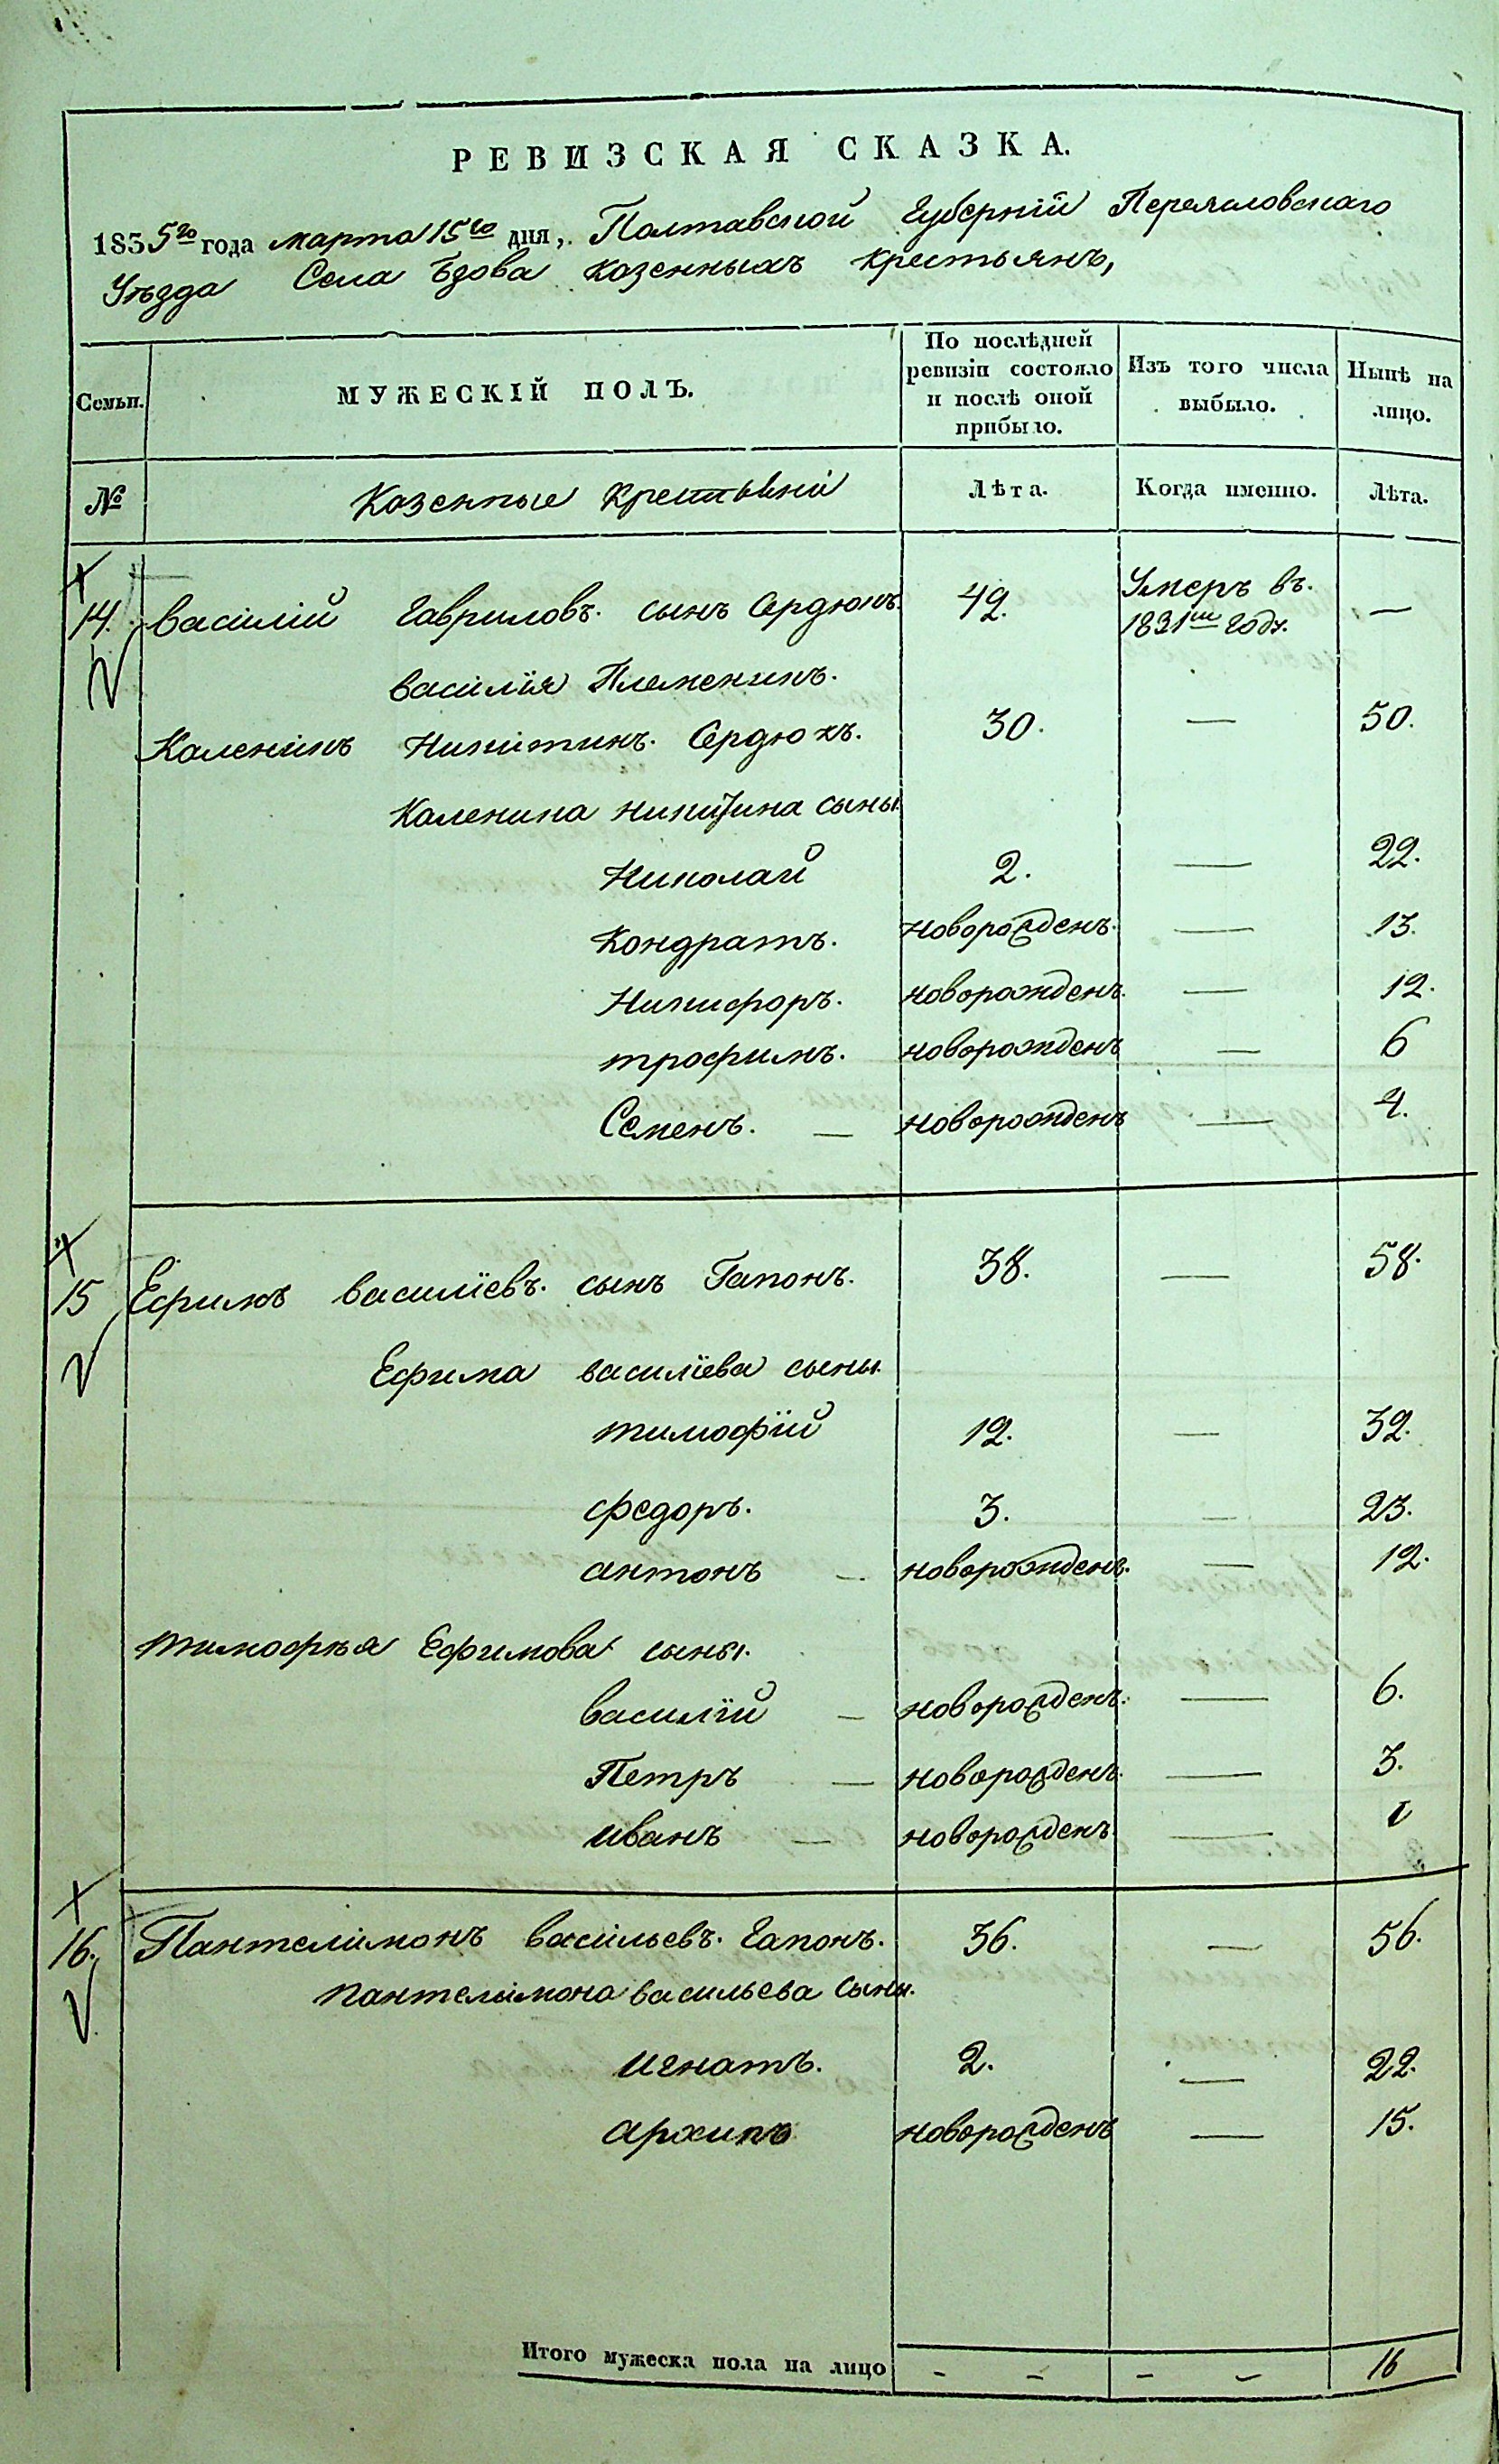 РЕВИЗСКАЯ СКАЗКА.
1835го года марта 15го дня, Полтавской Губерніи Переяловскаго
Уѣзда Села Ѣзова казенныхъ крестьянъ,
Семьи.
МУЖЕСКІЙ ПОЛЪ.
По послѣдней ревизіи состояло и послѣ оной прибыло.
Изъ того числа выбыло.
Нынѣ на лицо.
№ Казенные Крестьяни Лѣта. Когда именно. Лѣта.
14. Василій Гавриловъ. сынъ Сердюкъ. 49. Умеръ въ. 1831м году. —
Василія Племеникъ.
Каленикъ Никитинъ. Сердюкъ. 30. — 50.
Каленика никитина сыны.
Николай 2. — 22.
Кондратъ. новорожденъ. — 13.
Никифоръ. новорожденъ. — 12.
трофимъ. новорожденъ — 6
Семенъ. — новорожденъ — 4.
15 Ефимъ василіевъ. сынъ Гапонъ. 38. — 58.
Ефима василіева сыны.
тимофій 12. — 32.
федоръ. 3. — 23.
антонъ — новорожденъ. — 12.
тимофѣя Ефимова сыны.
василій — новорожденъ. — 6.
Петръ — новорожденъ. — 3.
иванъ — новорожденъ. — 1
16. Пантелимонъ васильевъ. Гапонъ. 36. — 56.
пантелимона васильева сыны.
игнатъ. 2. — 22.
архипъ новорожденъ — 15.
Итого мужеска пола на лицо - - - - 16